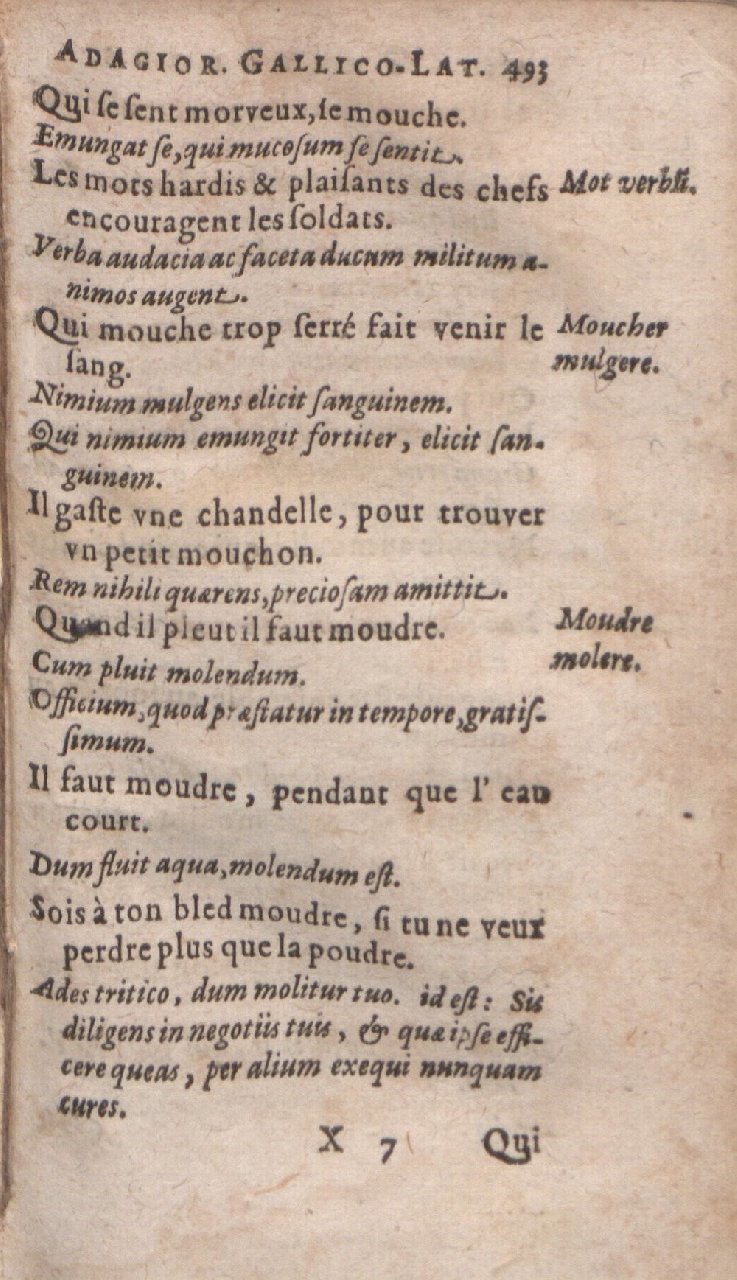 ADAGIOR. GALLICO-LAT. 493
Qui se ſent morveux, ſe mouche.
Emungat ſe, qui mucoſum ſe ſentit.
Les mots hardis & plaiſants des chefs
encouragent les ſoldats.
Mot verbũ.
Verba audacia ac faceta ducum militum a-
nimos augent.
Qui mouche trop ſerré fait venir le
ſang.
Moucher
mulgere.
Nimium mulgens elicit ſanguinem.
Qui nimium emungit fortiter, elicit ſan-
guinem.
Il gaſte vne chandelle, pour trouver
vn petit mouchon.
Rem nihili quærens, precioſam amittit.
Quand il pleut il faut moudre.
Moudre
molere.
Cum pluit molendum.
Officium, quod præſtatur in tempore, gratiſ-
ſimum.
Il faut moudre, pendant que l' eau
court.
Dum fluit aqua, molendum eſt.
Sois à ton bled moudre, ſi tu ne veux
perdre plus que la poudre.
Ades tritico, dum molitur tuo. id eſt: Sis
diligens in negotiis tuis, & quæ ipſe effi-
cere queas, per alium exequi nunquam
cures.
X 7 Qui